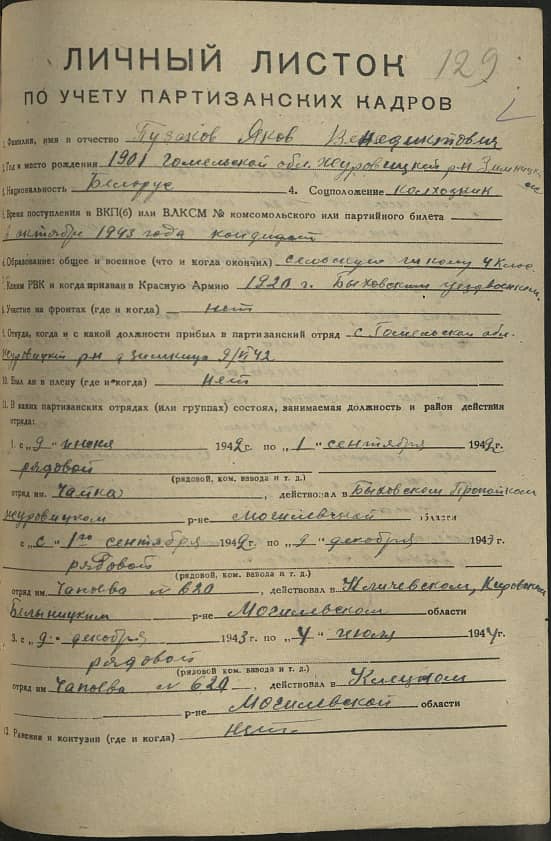 129
ЛИЧНЫЙ ЛИСТОК
ПО УЧЕТУ ПАРТИЗАНСКИХ КАДРОВ
1. Фамилия, имя и отчество Пузаков Яков Венедиктович
2. Год и место рождения 1901 Гомельской обл. Журовицкий р-н
3. Национальность Белорус 4. Соцположение Колхозник
5. Время поступления в ВКП(б) или ВЛКСМ № комсомольского или партийного билета
октября 1943 года кандидат
6. Образование: общее и военное (что и когда окончил) сельскую школу 4 клас.
7. Каким РВК и когда призван в Красную Армию 1920 г. Быховским
8. Участие на фронтах (где и когда) нет
9. Откуда, когда и с какой должности прибыл в партизанский отряд с Гомельской обл.
Журовицкий р-н д Зимница 9/VI 42
10. Был ли в плену (где и когда) нет
11. В каких партизанских отрядах (или группах) состоял, занимаемая должность и район действия
отряда:
1. с „9" июня 1942 г. по „1" сентября 1942 г.
рядовой
(рядовой, ком. взвода и т. д.)
отряд им. Чайка, действовал в Быховском Пропойском
журовицком р-не Могилевской области
с „с" 1го сентября 1942 г. по „9" декабря 1943 г.
рядовой
(рядовой, ком. взвода и т. д.)
отряд им Чапоева № 620, действовал в Кличевском,
Белыницким р-не Могилевском области
3. с „9" декабря 1943 г. по „4" июля 1944 г.
рядовой
(рядовой ком. взвода и т. д.)
отряд им Чапоева № 620, действовал в
р-не Могилевской области
12. Ранения и контузии (где и когда) нет.